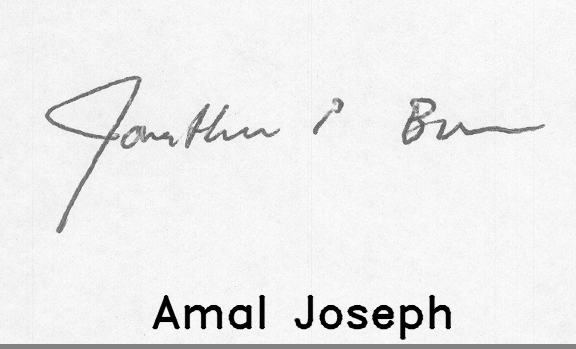 Jonathan P B
Amal Joseph